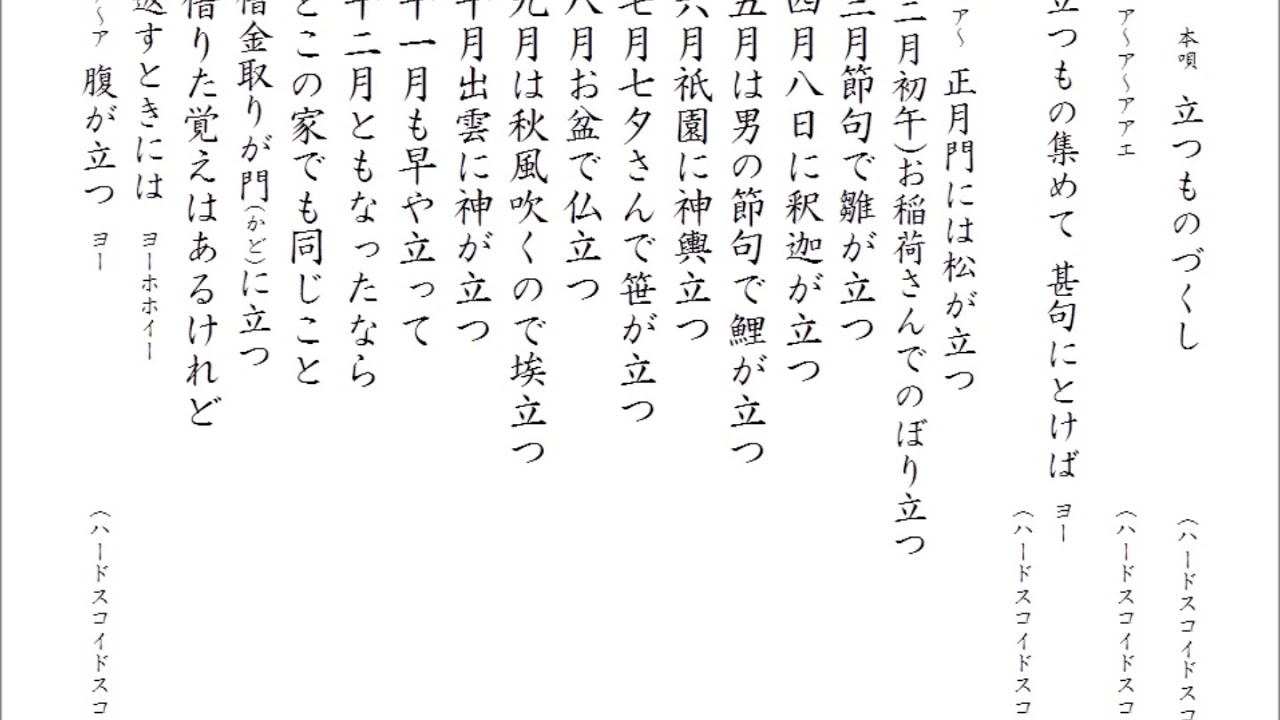 本唄　立つものづくし　（ハードスコイドスコ
ア〜ア〜アアエ　（ハードスコイドスコ
立つもの集めて　甚句にとけば　ヨー
（ハードスコイドスコ
ア〜　正月門には松が立つ
二月初午）お稲荷さんでのぼり立つ
三月節句で雛が立つ
四月八日に釈迦が立つ
五月は男の節句で鯉が立つ
六月祇園に神輿立つ
七月七夕さんで笹が立つ
八月お盆で仏立つ
九月は秋風吹くので埃立つ
十月出雲に神が立つ
十一月も早や立って
十二月ともなったなら
どこの家でも同じこと
借金取りが門（かど）に立つ
借りた覚えはあるけれど
返すときには　ヨーホホイー
〜ア　腹が立つ　ヨー　（ハードスコイドスコ